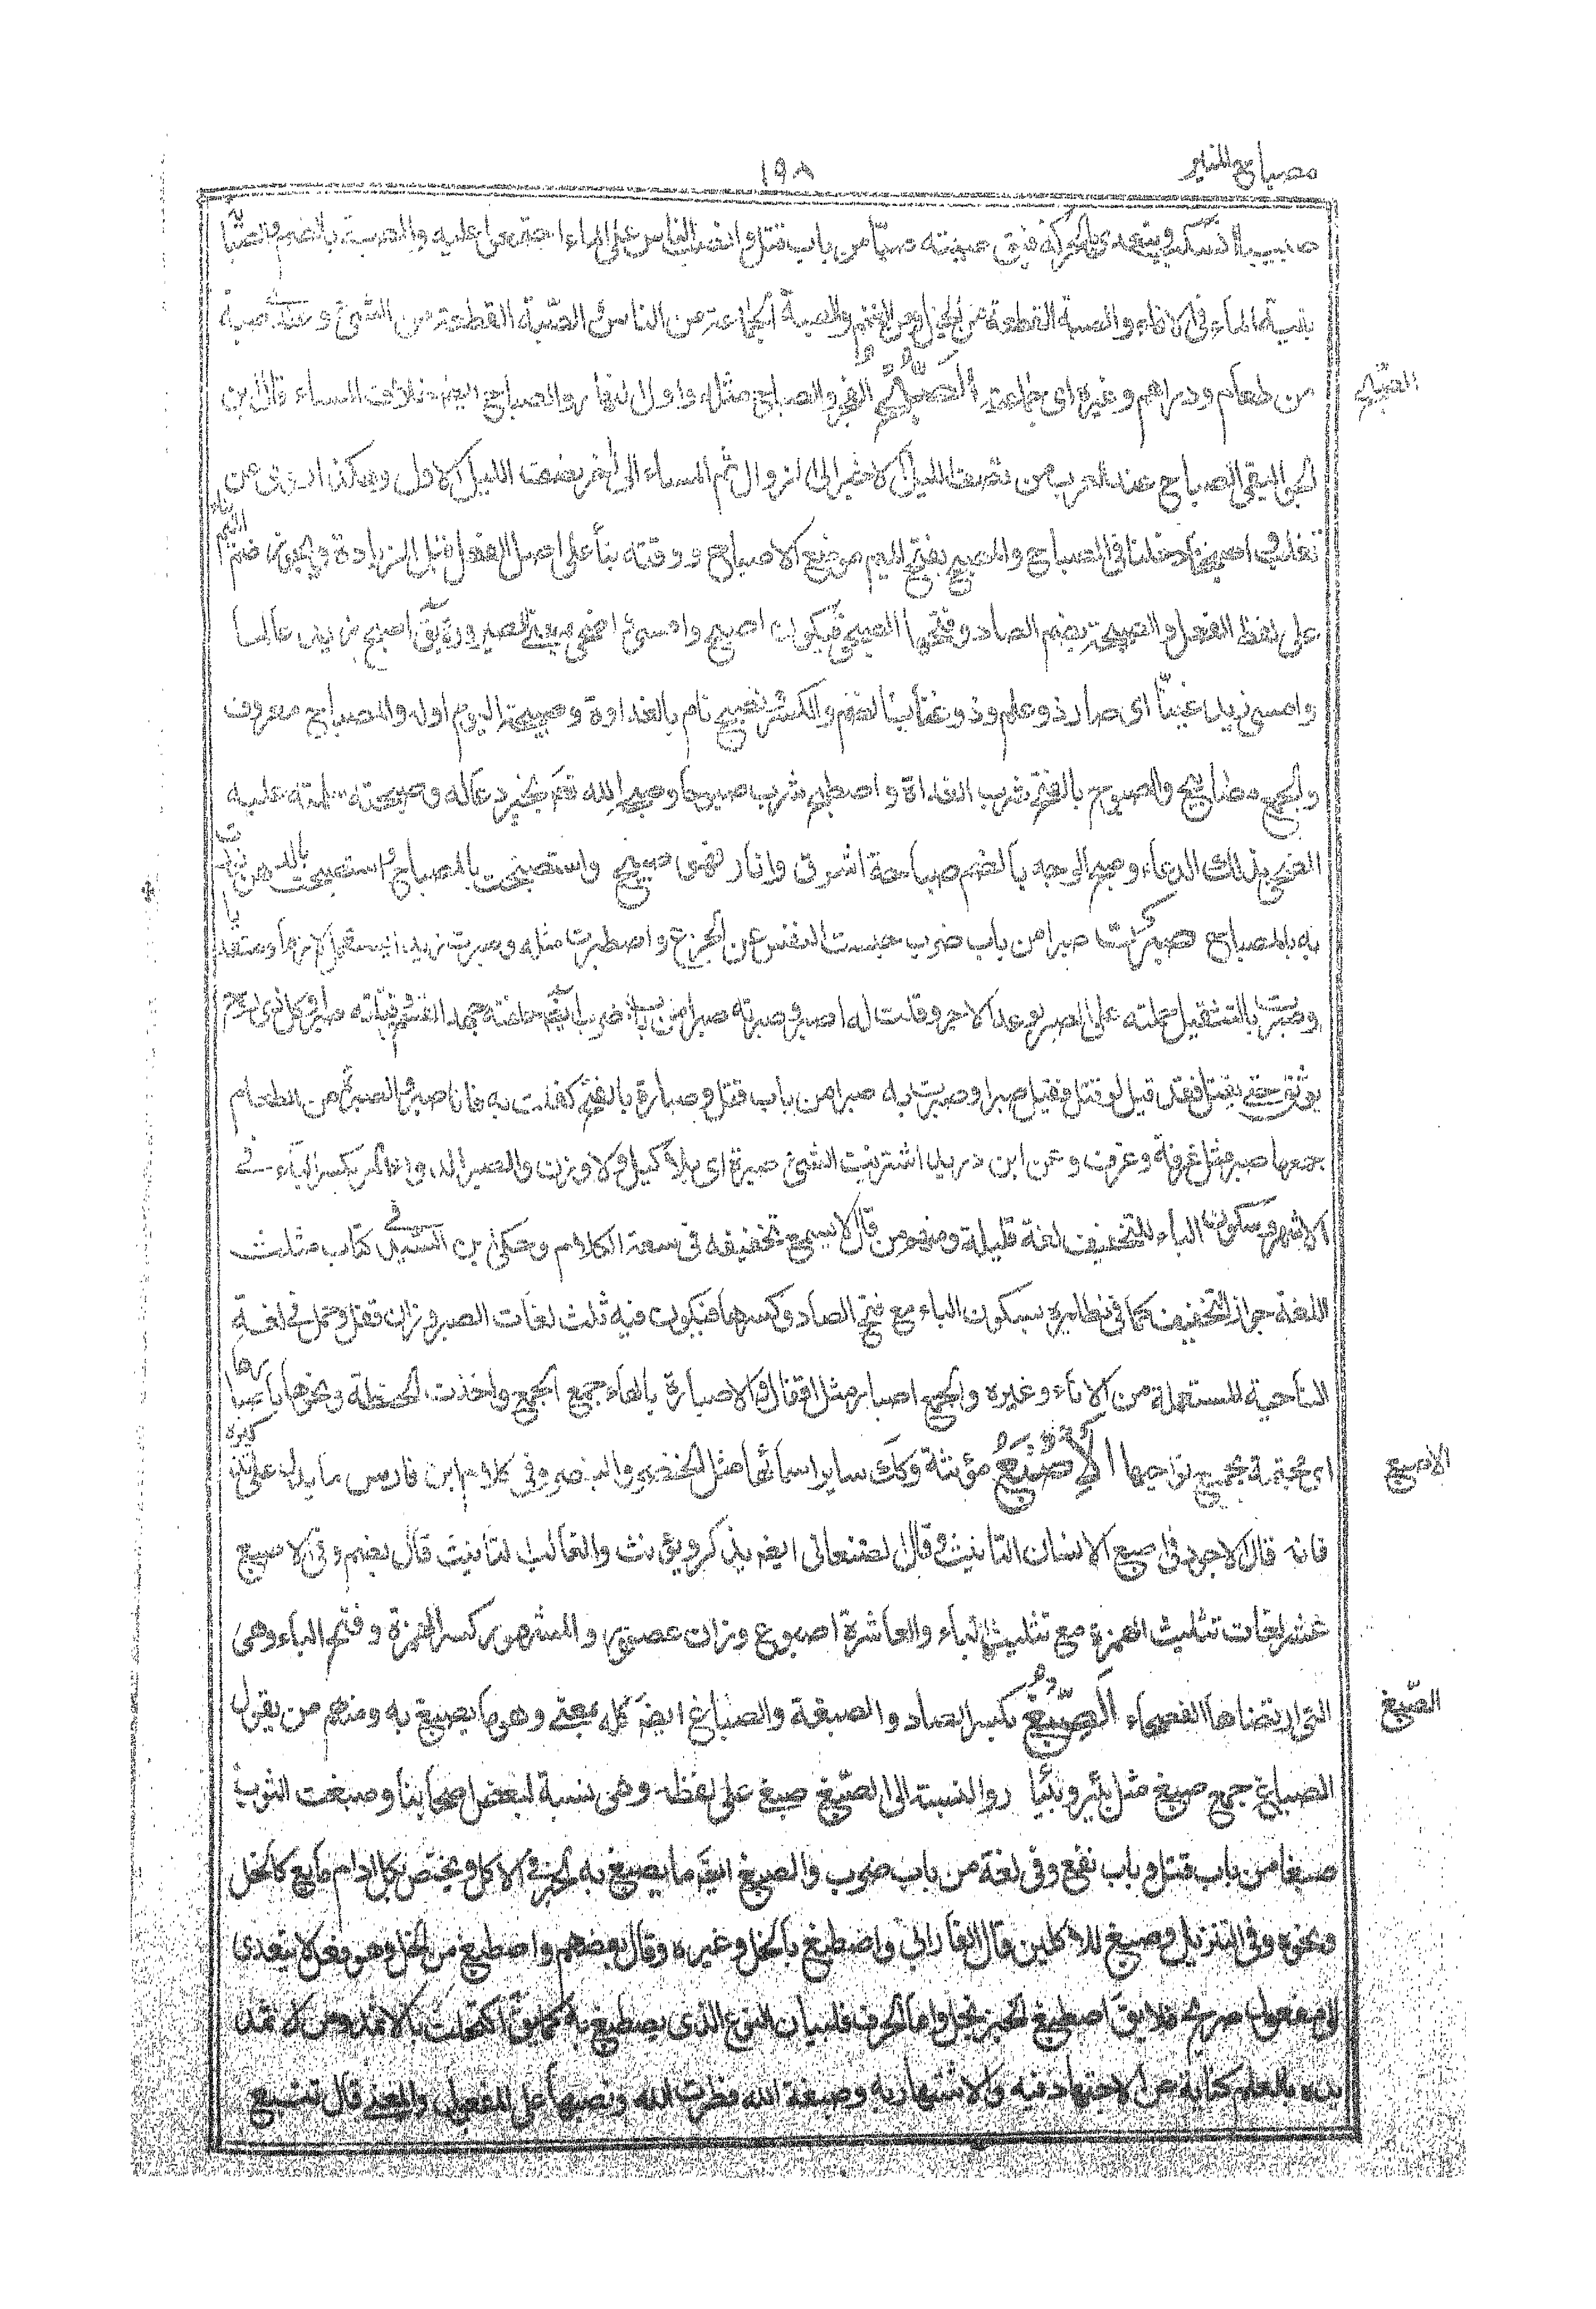 مصباح المنير
١٩٨
صبيبا انسكب ويتعدى بالحركة فيق صببته صبّا من باب قتل وانصب الناس على الماء اجتمعوا عليه والصبة بالضم والصبابة
بقية الماء فى الاناء والصبة القطعة من الخيل ومن الغنم والصبة الجماعة من الناس والصّبة القطعة من الشئ وعندى صبة
من طعام ودراهم وغيره اى جماعة الصُّبْحُ الفجر والصباح مثله واول النهار والصباح ايضا خلاف المساء قال ابن
الصّبح
الجواليقى الصباح عند العرب من نصف الليل الاخير الى الزوال ثم المساء الى اخر نصف الليل الاول وهكذا روى عن
ثعلب واصبحنا دخلنا فى الصباح والمصبح بفتح الميم موضع الاصباح ووقته بنأ على اصل الفعل قبل الزيادة ويجوز ضم الميم بناء
على لفظ الفعل والصبحة بضم الصاد وفتحها الضحى ويكون اصبح وامسى واضحى بمعنى الصيرورة يق اصبح زيد عالما
وامسى زيد غنيّا اى صار ذو علم وذو غنا بالضم والكسر تصبح نام بالغداوة وصبيحة اليوم اوله والمصباح معروف
والجمع مصابيح والصبوح بالفتح شرب الغداة واصطبح شرب صبوحا وصبحه الله بخير دعا له وصبحته سلمت عليه
بذلك الدعاء وصبح الوجه بالضم صباحة اشرق وانار فهو صبيح واستصبحت بالمصباح واستصبحت بالدهن نورت
به المصباح صبرت صبرا من باب ضرب حبست النفس عن الجزع واصطبرت مثله وصبرت زيدا يستعمل لازما ومتعديا
وصبّرته بالتثقيل حملته على الصبر بوعد الاجر وقلت له اصبر وصبرته صبرا من باب ضرب ايضا حلفته جهد القسم وقتلته صبرا وكل ذى روح
يوثق حتى يقتل فقد قتل صبرا وصبرت به صبرا من باب قتل وصبارة بالفتح كفلت به فانا صبير والصبرة من الطعام
جمعها صبر مثل غرفة وغرف وعن ابن دريد اشتريت الشئ صبرة اى بلا كيل ولا وزن والصبر الدواء المر بكسر الباء فى
الاشهر وسكون الباء للتخفيف لغة قليلة ومنهم من قال لا يسمع تخفيفه فى سعة الكلام وحكى ابن السّيد فى كتاب مثلث
اللغة جواز التخفيف كما فى نظايره بسكون الباء مع فتح الصاد وكسرها فيكون فيه ثلث لغات والصبر وزان قفل وحمل فى لغة
الناحية المستعملة من الاناء وغيره والجمع اصبار مثل اقفال والاصبارة بالهاء جمع الجمع واخذت الحنطة ونحوها باصبارها
اى مجتمعة بجميع نواحيها الاِصْبَعُ مؤنثة وكذلك ساير اسمائها مثل الخنصر والبنصر وفى كلام ابن فارس ما يدل على تذكيره
الاصبع
فانه قال الاجود فى اصبع الانسان التانيث وقال الصنعانى ايضا يذكر ويؤنث والغالب التانيث قال بعضهم وفى الاصبع
عشر لغات تثليث الهمزة مع تثليث الباء والعاشرة اصبوع وزان عصفور والمشهور كسر الهمزة وفتح الباء وهى
التى ارتضاها الفصحاء الصِّبْغُ بكسر الصاد والصبغة والصباغ ايضا كله بمعنى وهو ما يصبغ به ومنهم من يقول
الصّبغ
الصباغ جمع صبغ مثل بئر وبئار والنسبة الى الصّبغ صبغى على لفظه وهى نسبة لبعض اصحابنا وصبغت الثوب
صبغا من باب قتل وباب نفع وفى لغة من باب ضرب والصبغ ايضا ما يصبغ به الخبز فى الاكل ويختص بكل ادام مايع كالخل
ونحوه وفى التنزيل وصبغ للاكلين قال الفارابى واصطبغ بالخل وغيره وقال بعضهم واصطبغ من الخل وهو فعل لا يتعدى
الى مفعول صريح فلا يق اصطبغ الخبز بخل واما الحرف فلبيان النوع الذى يصطبغ به كما يق اكتحلت بالاثمد ومن الاثمد
يده بالعلم كناية عن الاجتهاد فيه والاشتهار به وصبغة الله فطرت الله ونصبها على المفعول والمعنى قال نتبع